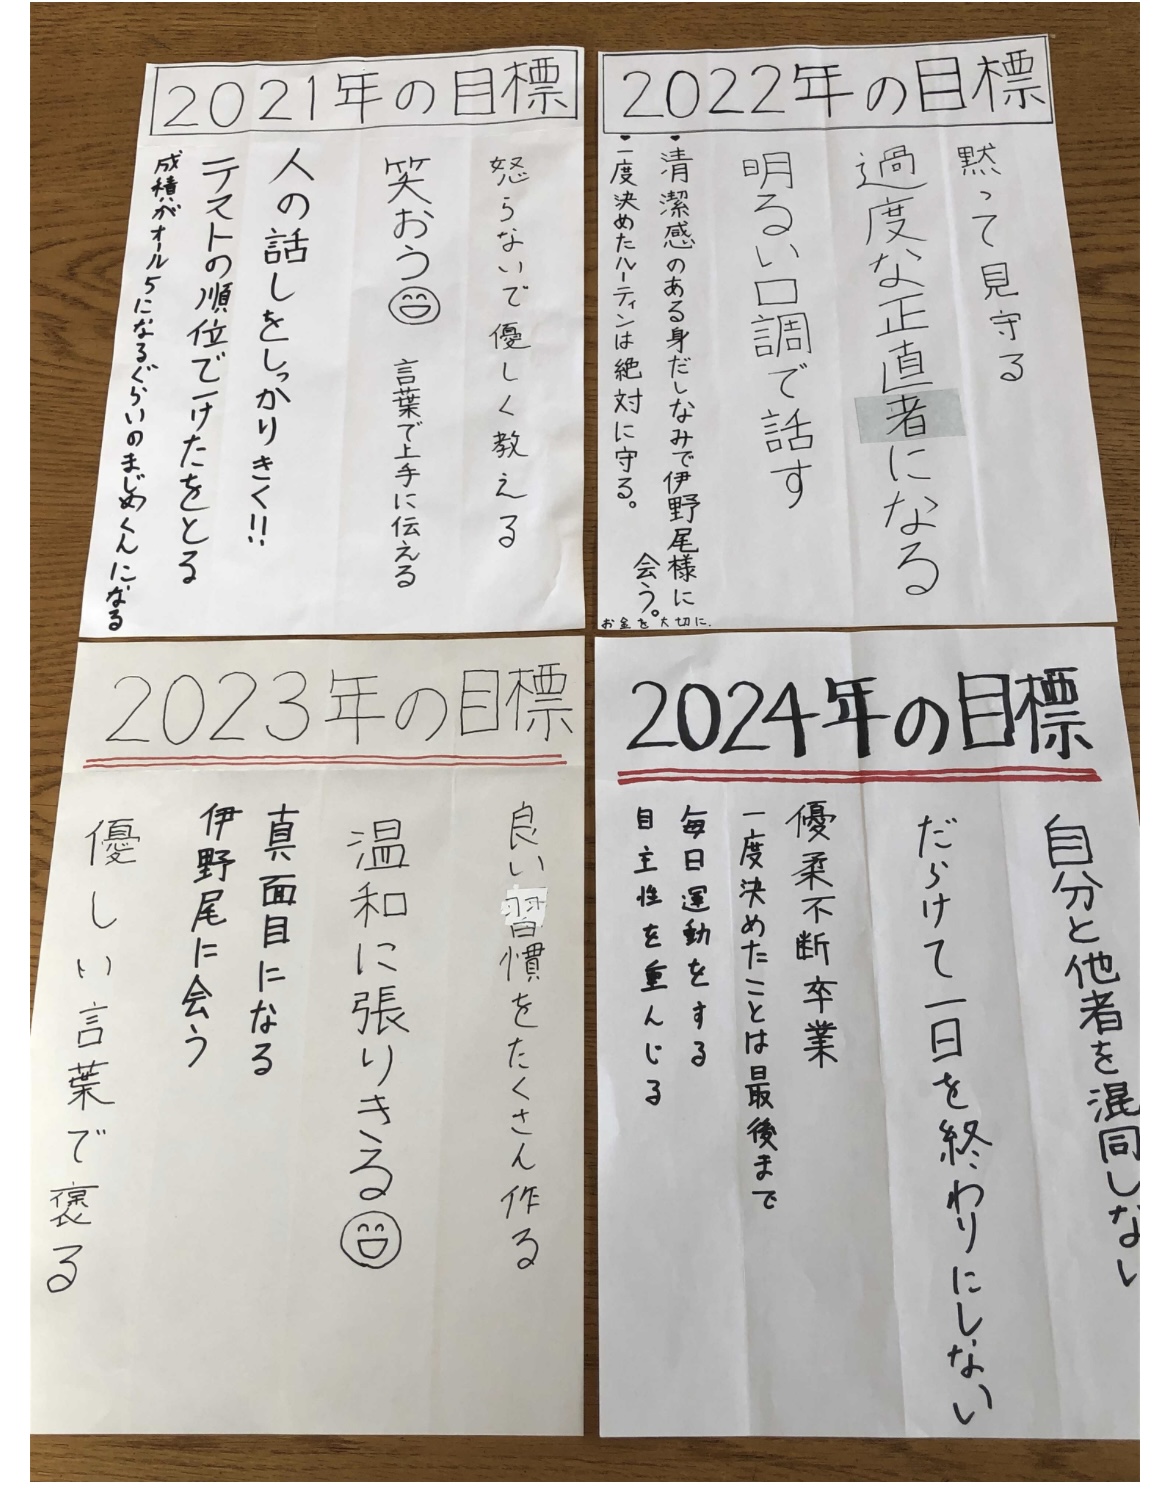 2021年の目標
怒らないで優しく教える
笑おう 言葉で上手に伝える
人の話しをしっかりきく!!
テストの順位で一けたをとる
成積がオール5になるぐらいのまじめくんになる
2022年の目標
黙って見守る
過度な正直者になる
明るい口調で話す
・清潔感のある身だしなみで伊野尾様に
会う。
・一度決めたルーティンは絶対に守る。
お金を大切に.
2023年の目標
良い習慣をたくさん作る
温和に張りきる
真面目になる
伊野尾に会う
優しい言葉で褒る
2024年の目標
自分と他者を混同しない
だらけて一日を終わりにしない
優柔不断卒業
一度決めたことは最後まで
毎日運動をする
自主性を重んじる